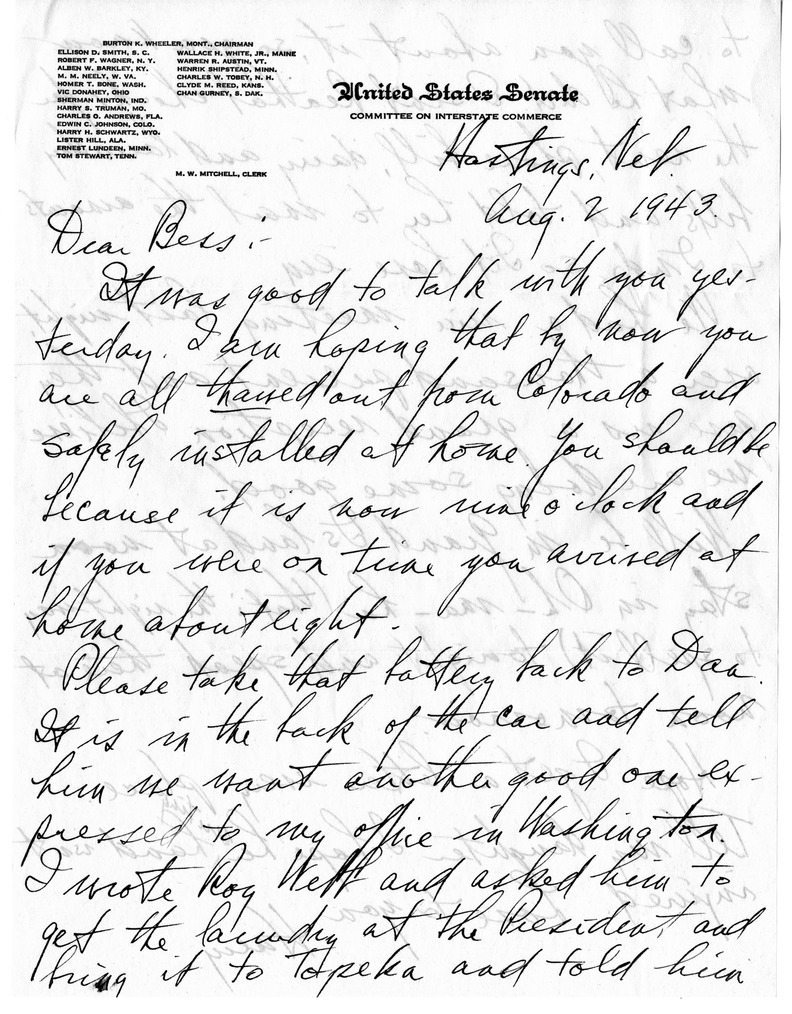 BURTON K. WHEELER, MONT., CHAIRMAN
ELLISON D. SMITH, S. C.
ROBERT F. WAGNER, N. Y.
ALBEN W. BARKLEY, KY.
M. M. NEELY, W. VA.
HOMER T. BONE, WASH.
VIC DONAHEY, OHIO
SHERMAN MINTON, IND.
HARRY S. TRUMAN, MO.
CHARLES O. ANDREWS, FLA.
EDWIN C. JOHNSON, COLO.
HARRY H. SCHWARTZ, WYO.
LISTER HILL, ALA.
ERNEST LUNDEEN, MINN.
TOM STEWART, TENN.
WALLACE H. WHITE, JR., MAINE
WARREN R. AUSTIN, VT.
HENRIK SHIPSTEAD, MINN.
CHARLES W. TOBEY, N. H.
CLYDE M. REED, KANS.
CHAN GURNEY, S. DAK.
M. W. MITCHELL, CLERK
United States Senate
COMMITTEE ON INTERSTATE COMMERCE
Hastings, Neb.
Aug. 2 1943.
Dear Bess:-
It was good to talk with you yes-
terday. I am hoping that by now you
are all thawed out from Colorado and
safely installed at home. You should be
because it is now nine o'clock and
if you were on time you arrived at
home about eight.
Please take that battery back to Dan.
It is in the back of the car and tell
him we want another good one ex-
pressed to my office in Washington.
I wrote Roy and asked him to
get the laundry at the President and
bring it to Topeka and told him